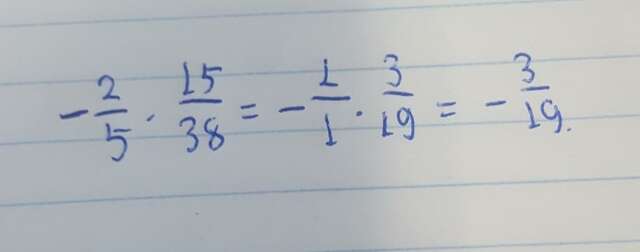 -2/5 · 15/38 = -1/1 · 3/19 = -3/19.